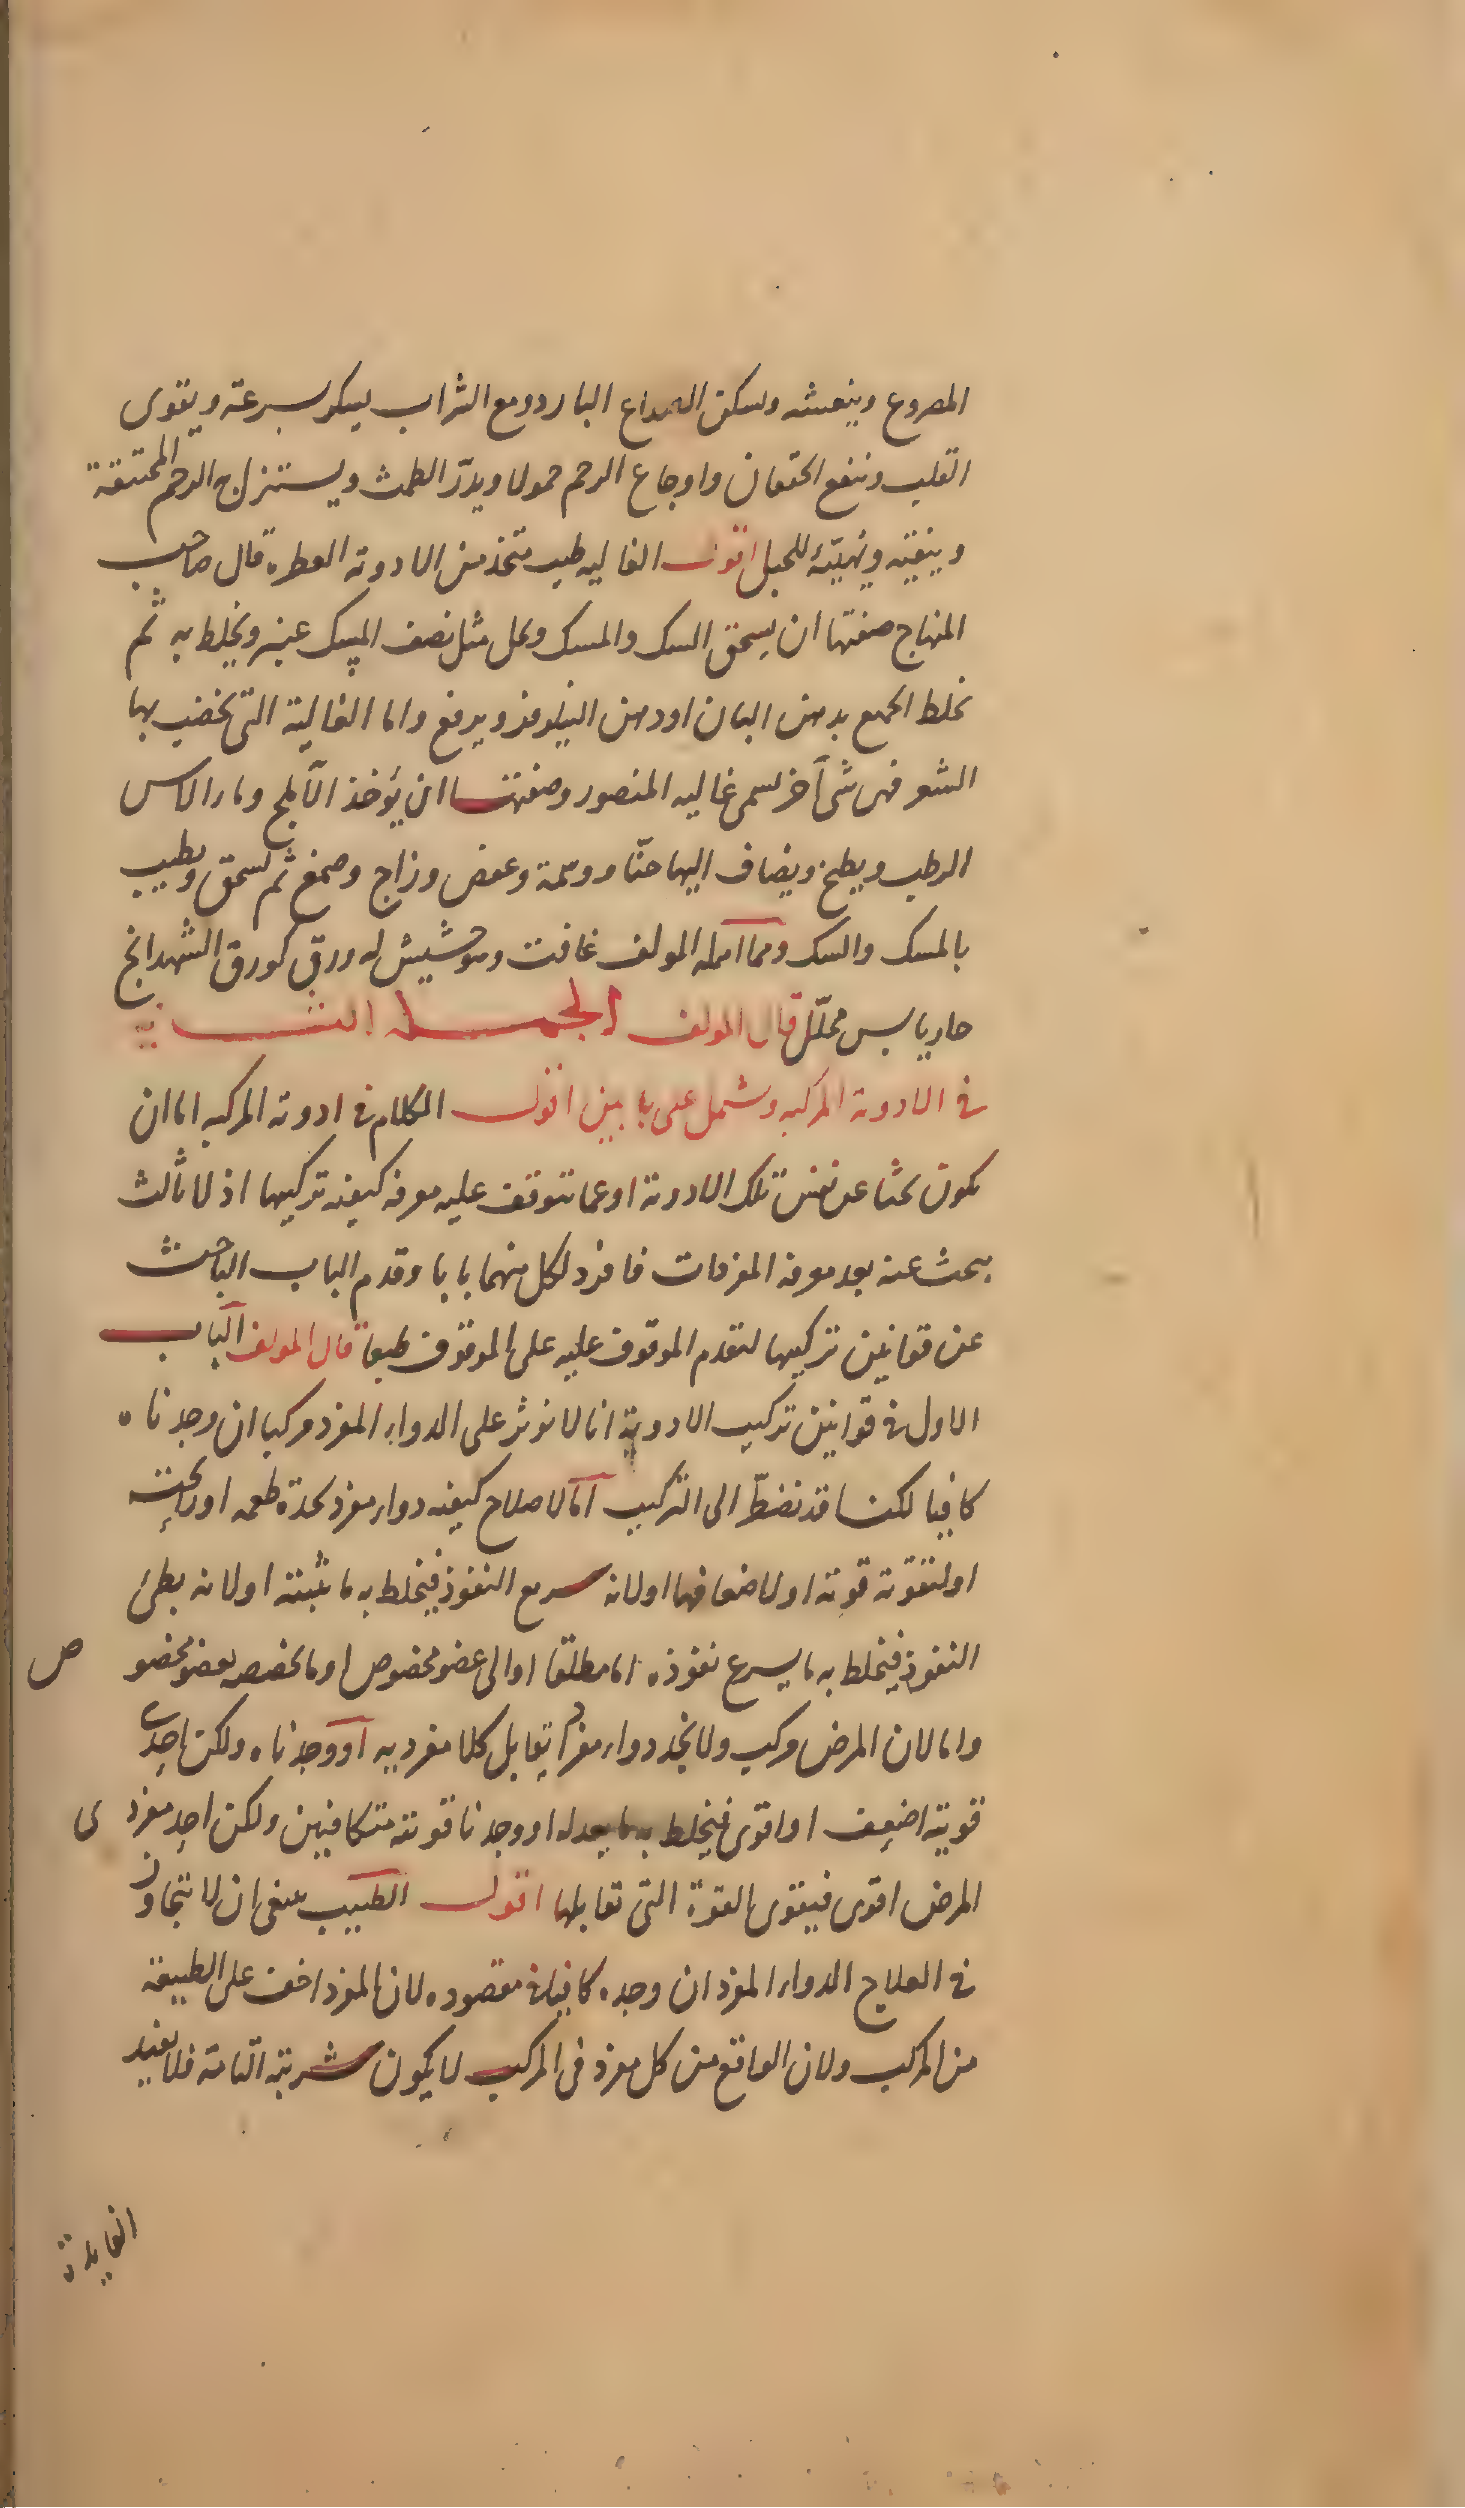 المصروع وينعشه ويسكن الصداع البارد ومع الشراب يسكر بسرعة ويقوى
القلب وينفع الخفقان واوجاع الرحم حمولا ويدرّ الطمث ويستنزل الرحم المختنقة
وينقيه ويهيّئ للحبل اقول الغاليه طيب متخذ من الادوية العطره قال صاحب
المنهاج صفتها ان يسحق السك والمسك ويحل مثل نصف المسك عنبر ويخلط به ثم
يخلط الجميع بدهن البان او دهن النيلوفر ويرفع واما الغالية التى يخضب بها
الشعر فهى شئ آخر يسمى غاليه المنصور وصفتها ان يؤخذ الاملج وماء الاس
الرطب ويطبخ ويضاف اليها حنّاء ووسمة وعفص وزاج وصمغ ثم يسحق ويطيب
بالمسك والسك ومما اهمله المولف غافت وهو حشيش له ورق كورق الشهدانج
حار يابس محلّل قال المولف الجملة الثانية
فى الادوية المركبه وتشمل على بابين اقول الكلام فى ادوية المركبه اما ان
يكون بحثا عن نفس تلك الادوية او عما تتوقف عليه معرفة كيفية تركيبها اذ لا ثالث
يبحث عنه بعد معرفة المفردات فافرد لكل منهما بابا وقدم الباب الباحث
عن قوانين تركيبها لتقدم الموقوف عليه على الموقوف طبعا قال المولف الباب
الاول فى قوانين تركيب الادوية انا لا نوثر على الدواء المفرد مركبا ان وجدناه
كافيا لكنا قد نضطّر الى التركيب اما لاصلاح كيفية دواء مفرد كحدة طعمه او رائحته
او لتقوية قوته او لاضعافها او لانه سريع النفوذ فيخلط به ما يثبته او لانه بطئ
النفوذ فيخلط به ما يسرع نفوذه اما مطلقا او الى عضو مخصوص او ما يخصصه بعضو مخصو ص
واما لان المرض مركب ولا نجد دواء مفردا يقابل كلا مفرديه او وجدناه ولكن احدى
قوييه اضعف او اقوى فيخلط به ما يعدله او وجدنا قوتيه متكافيين ولكن احد مفرد ى
المرض اقوى فيقوى القوة التى تقابلها اقول الطبيب ينبغى ان لا يتجاوز
فى العلاج الدواء المفرد ان وجده كافيا فى مقصوده لان المفرد اخف على الطبيعة
من المركب ولان الواقع من كل مفرد فى المركب لا يكون شربته التامة فلا يفيد
الفايدة